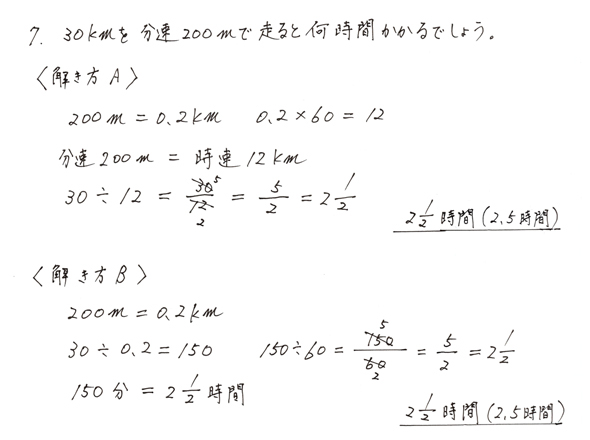 7. 30kmを分速200mで走ると何時間かかるでしょう。
〈解き方A〉
200m=0.2km 0.2×60=12
分速200m=時速12km
30÷12=30/12=5/2=2 1/2
2 1/2時間(2.5時間)
〈解き方B〉
200m=0.2km
30÷0.2=150 150÷60=150/60=5/2=2 1/2
150分=2 1/2時間
2 1/2時間(2.5時間)